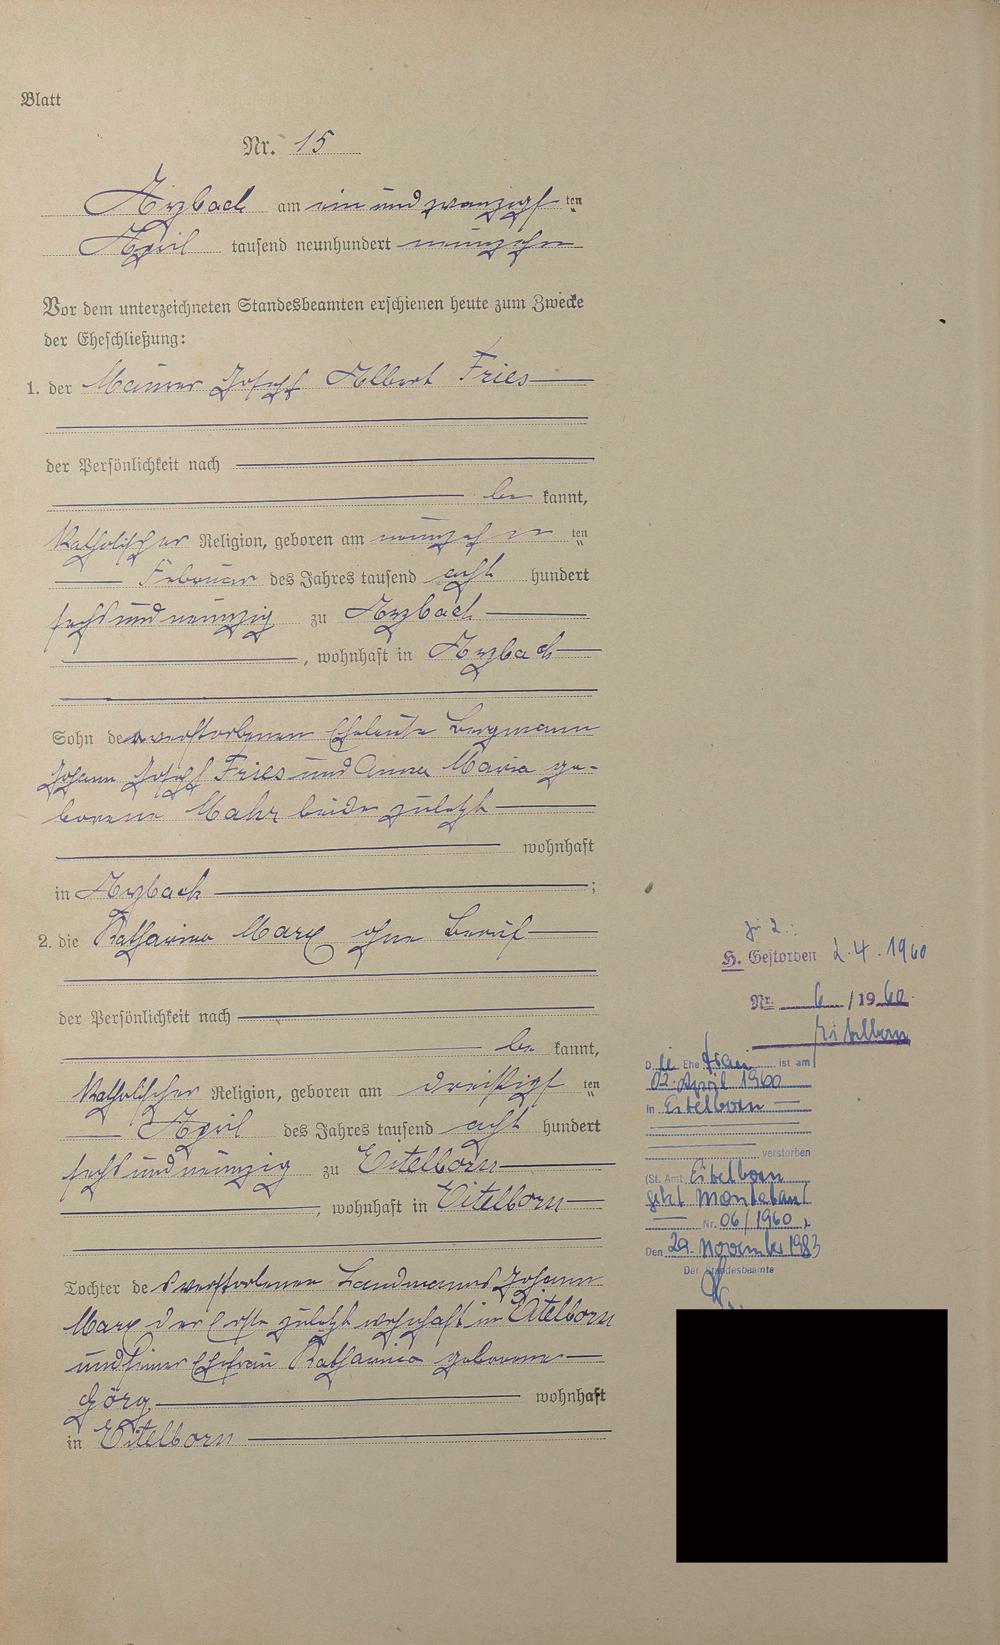 Blatt
Nr. 15
Arzbach am ein und zwanzigsten
April tausend neunhundert neunzehn
Vor dem unterzeichneten Standesbeamten erschienen heute zum Zwecke
der Eheschließung:
1. der Maurer Joseph Albert Fries
der Persönlichkeit nach
be kannt,
katholischer Religion, geboren am neunzehnten
Februar des Jahres tausend acht hundert
sechs und neunzig zu Arzbach
, wohnhaft in Arzbach
Sohn der verstorbenen Eheleute Bergmann
Johann Joseph Fries und Anna Maria ge-
borene Mahr beide zuletzt
wohnhaft
in Arzbach ;
2. die Katharina Marx ohne Beruf
der Persönlichkeit nach
be kannt,
katholischer Religion, geboren am dreißigsten
April des Jahres tausend acht hundert
sechs und neunzig zu Eitelborn
, wohnhaft in Eitelborn
Tochter des verstorbenen Landmanns Johann
Marx der Erste zuletzt wohnhaft in Eitelborn
und seiner Ehefrau Katharina geborene
Görg wohnhaft
in Eitelborn
zu 2.
H. Gestorben 2.4.1960
Nr. 6 / 1960
Eitelborn
Die Ehefrau ist am
02. April 1960
in Eitelborn
verstorben
(St. Amt Eitelborn
jetzt Montabaur
Nr. 06/1960 )
Den 29. November 1983
Der Standesbeamte